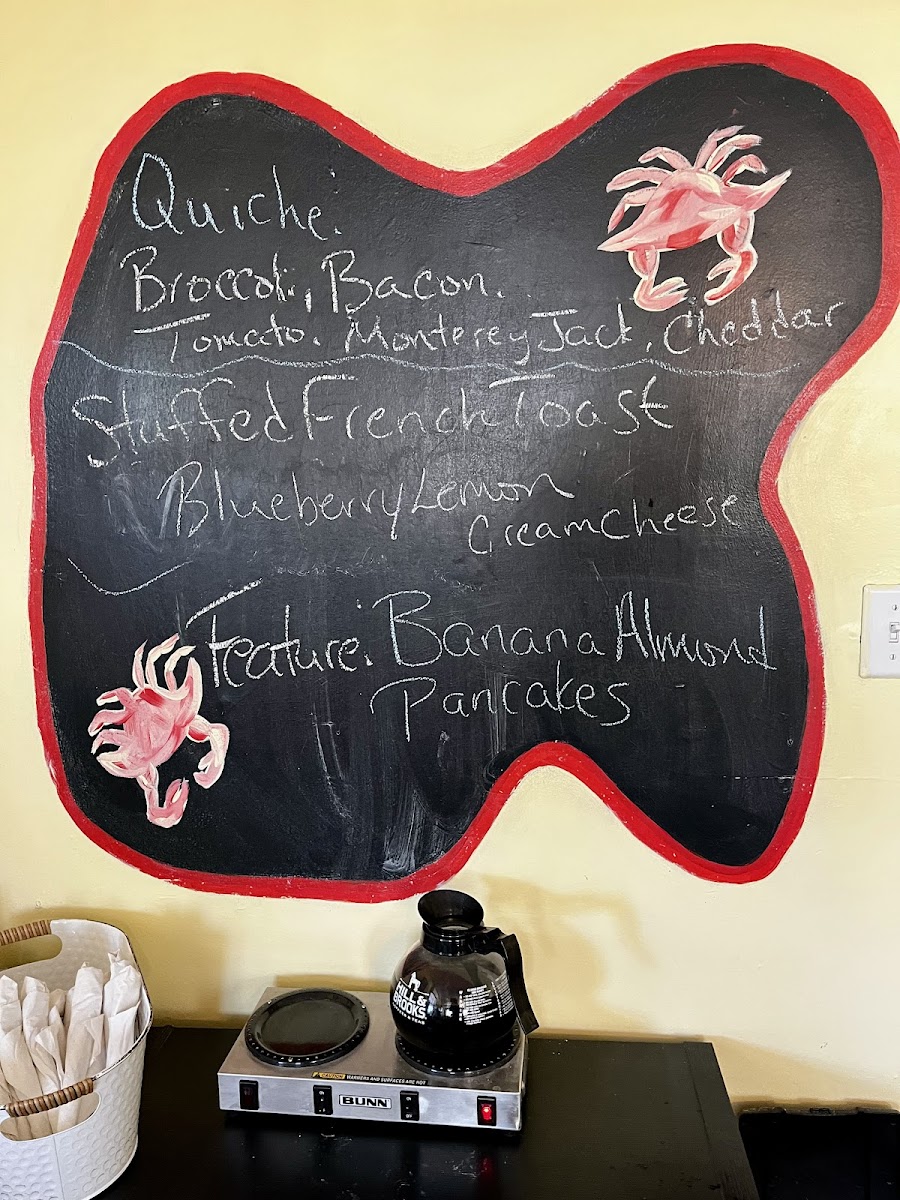 Quiche:
Broccoli, Bacon.
Tomato. Monterey Jack, Cheddar
Stuffed French Toast
Blueberry Lemon
Cream Cheese
Feature: Banana Almond
Pancakes
HILL &
BROOKS
CAUTION WARMERS AND SURFACES ARE HOT
BUNN